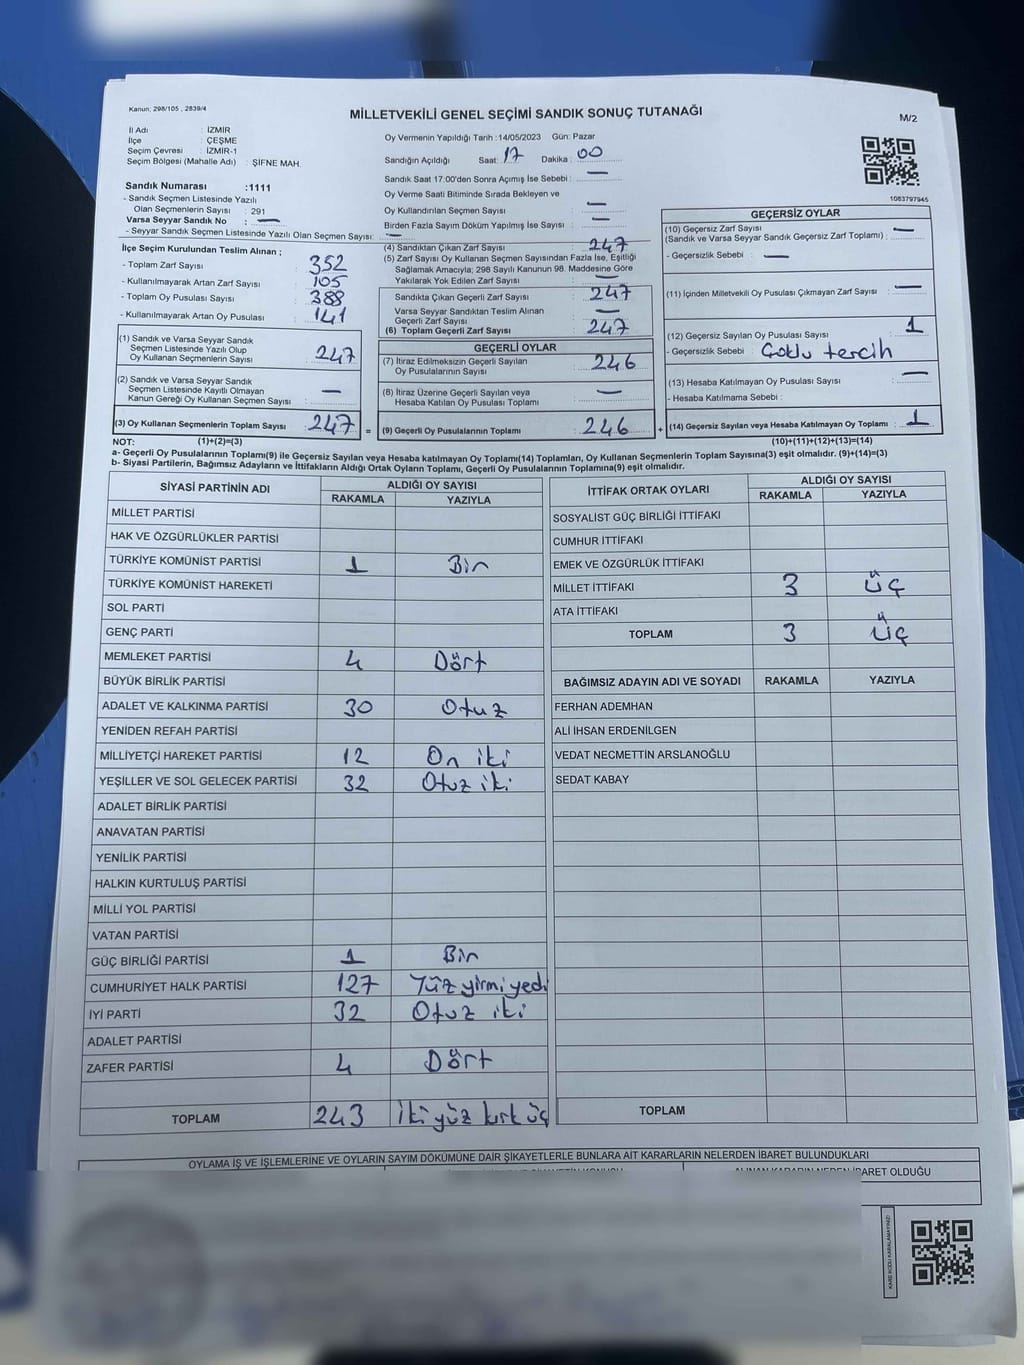 Kanun: 298/105 , 2839/4
MİLLETVEKİLİ GENEL SEÇİMİ SANDIK SONUÇ TUTANAĞI
M/2
İl Adı : İZMİR
İlçe : ÇEŞME
Seçim Çevresi : İZMİR-1
Seçim Bölgesi (Mahalle Adı) : ŞİFNE MAH.
Sandık Numarası :1111
- Sandık Seçmen Listesinde Yazılı
Olan Seçmenlerin Sayısı : 291
Varsa Seyyar Sandık No : —
- Seyyar Sandık Seçmen Listesinde Yazılı Olan Seçmen Sayısı: —
Oy Vermenin Yapıldığı Tarih :14/05/2023 Gün: Pazar
Sandığın Açıldığı Saat: 17 Dakika : 00
Sandık Saat 17:00'den Sonra Açımış İse Sebebi : —
Oy Verme Saati Bitiminde Sırada Bekleyen ve
Oy Kullandırılan Seçmen Sayısı : —
Birden Fazla Sayım Döküm Yapılmış İse Sayısı : —
1083797945
İlçe Seçim Kurulundan Teslim Alınan ;
- Toplam Zarf Sayısı : 352
- Kullanılmayarak Artan Zarf Sayısı : 105
- Toplam Oy Pusulası Sayısı : 388
- Kullanılmayarak Artan Oy Pusulası : 141
(1) Sandık ve Varsa Seyyar Sandık
Seçmen Listesinde Yazılı Olup
Oy Kullanan Seçmenlerin Sayısı : 247
(2) Sandık ve Varsa Seyyar Sandık
Seçmen Listesinde Kayıtlı Olmayan
Kanun Gereği Oy Kullanan Seçmen Sayısı : —
(3) Oy Kullanan Seçmenlerin Toplam Sayısı : 247
(4) Sandıktan Çıkan Zarf Sayısı : 247
(5) Zarf Sayısı Oy Kullanan Seçmen Sayısından Fazla İse, Eşitliği
Sağlamak Amacıyla; 298 Sayılı Kanunun 98. Maddesine Göre
Yakılarak Yok Edilen Zarf Sayısı : —
Sandıkta Çıkan Geçerli Zarf Sayısı : 247
Varsa Seyyar Sandıktan Teslim Alınan
Geçerli Zarf Sayısı : —
(6) Toplam Geçerli Zarf Sayısı : 247
GEÇERLİ OYLAR
(7) İtiraz Edilmeksizin Geçerli Sayılan
Oy Pusulalarının Sayısı : 246
(8) İtiraz Üzerine Geçerli Sayılan veya
Hesaba Katılan Oy Pusulası Toplamı : —
= (9) Geçerli Oy Pusulalarının Toplamı : 246
GEÇERSİZ OYLAR
(10) Geçersiz Zarf Sayısı : —
(Sandık ve Varsa Seyyar Sandık Geçersiz Zarf Toplamı)
- Geçersizlik Sebebi : —
(11) İçinden Milletvekili Oy Pusulası Çıkmayan Zarf Sayısı : —
(12) Geçersiz Sayılan Oy Pusulası Sayısı : 1
- Geçersizlik Sebebi : Çoklu tercih
(13) Hesaba Katılmayan Oy Pusulası Sayısı : —
- Hesaba Katılmama Sebebi :
+ (14) Geçersiz Sayılan veya Hesaba Katılmayan Oy Toplamı : 1
NOT: (1)+(2)=(3) (10)+(11)+(12)+(13)=(14)
a- Geçerli Oy Pusulalarının Toplamı(9) ile Geçersiz Sayılan veya Hesaba katılmayan Oy Toplamı(14) Toplamları, Oy Kullanan Seçmenlerin Toplam Sayısına(3) eşit olmalıdır. (9)+(14)=(3)
b- Siyasi Partilerin, Bağımsız Adayların ve İttifakların Aldığı Ortak Oyların Toplamı, Geçerli Oy Pusulalarının Toplamına(9) eşit olmalıdır.
SİYASİ PARTİNİN ADI ALDIĞI OY SAYISI
RAKAMLA YAZIYLA
MİLLET PARTİSİ
HAK VE ÖZGÜRLÜKLER PARTİSİ
TÜRKİYE KOMÜNİST PARTİSİ 1 Bir
TÜRKİYE KOMÜNİST HAREKETİ
SOL PARTİ
GENÇ PARTİ
MEMLEKET PARTİSİ 4 Dört
BÜYÜK BİRLİK PARTİSİ
ADALET VE KALKINMA PARTİSİ 30 Otuz
YENİDEN REFAH PARTİSİ
MİLLİYETÇİ HAREKET PARTİSİ 12 On iki
YEŞİLLER VE SOL GELECEK PARTİSİ 32 Otuz iki
ADALET BİRLİK PARTİSİ
ANAVATAN PARTİSİ
YENİLİK PARTİSİ
HALKIN KURTULUŞ PARTİSİ
MİLLİ YOL PARTİSİ
VATAN PARTİSİ
GÜÇ BİRLİĞİ PARTİSİ 1 Bir
CUMHURİYET HALK PARTİSİ 127 Yüz yirmi yedi
İYİ PARTİ 32 Otuz iki
ADALET PARTİSİ
ZAFER PARTİSİ 4 Dört
TOPLAM 243 İki yüz kırk üç
İTTİFAK ORTAK OYLARI ALDIĞI OY SAYISI
RAKAMLA YAZIYLA
SOSYALİST GÜÇ BİRLİĞİ İTTİFAKI
CUMHUR İTTİFAKI
EMEK VE ÖZGÜRLÜK İTTİFAKI
MİLLET İTTİFAKI 3 üç
ATA İTTİFAKI
TOPLAM 3 üç
BAĞIMSIZ ADAYIN ADI VE SOYADI RAKAMLA YAZIYLA
FERHAN ADEMHAN
ALİ İHSAN ERDENİLGEN
VEDAT NECMETTİN ARSLANOĞLU
SEDAT KABAY
TOPLAM
OYLAMA İŞ VE İŞLEMLERİNE VE OYLARIN SAYIM DÖKÜMÜNE DAİR ŞİKAYETLERLE BUNLARA AİT KARARLARIN NELERDEN İBARET BULUNDUKLARI
ALINAN KARARIN NEDEN İBARET OLDUĞU
KARE KODU KARALAMAYINIZ!